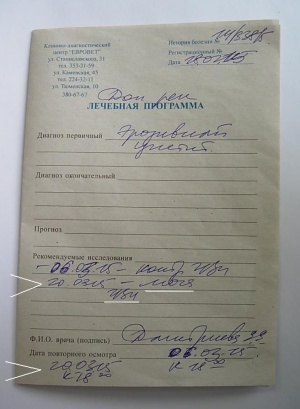 Клинико-диагностический
центр "ЕВРОВЕТ"
ул. Станиславского, 31
тел. 353-31-59
ул. Каменская, 45
тел. 224-32-11
ул. Тюменская, 10
380-67-67
История болезни №
Регистрационный №
Дата
Доп рек
ЛЕЧЕБНАЯ ПРОГРАММА
Диагноз первичный
цистит.
Диагноз окончательный
Прогноз
Рекомендуемые исследования
- 06.03.15 - контр УЗИ
20.03.15 - моча
УЗИ
Ф.И.О. врача (подпись) Дмитриева
Дата повторного осмотра 06.03.15.
20.03.15 к 18 00
к 18 00